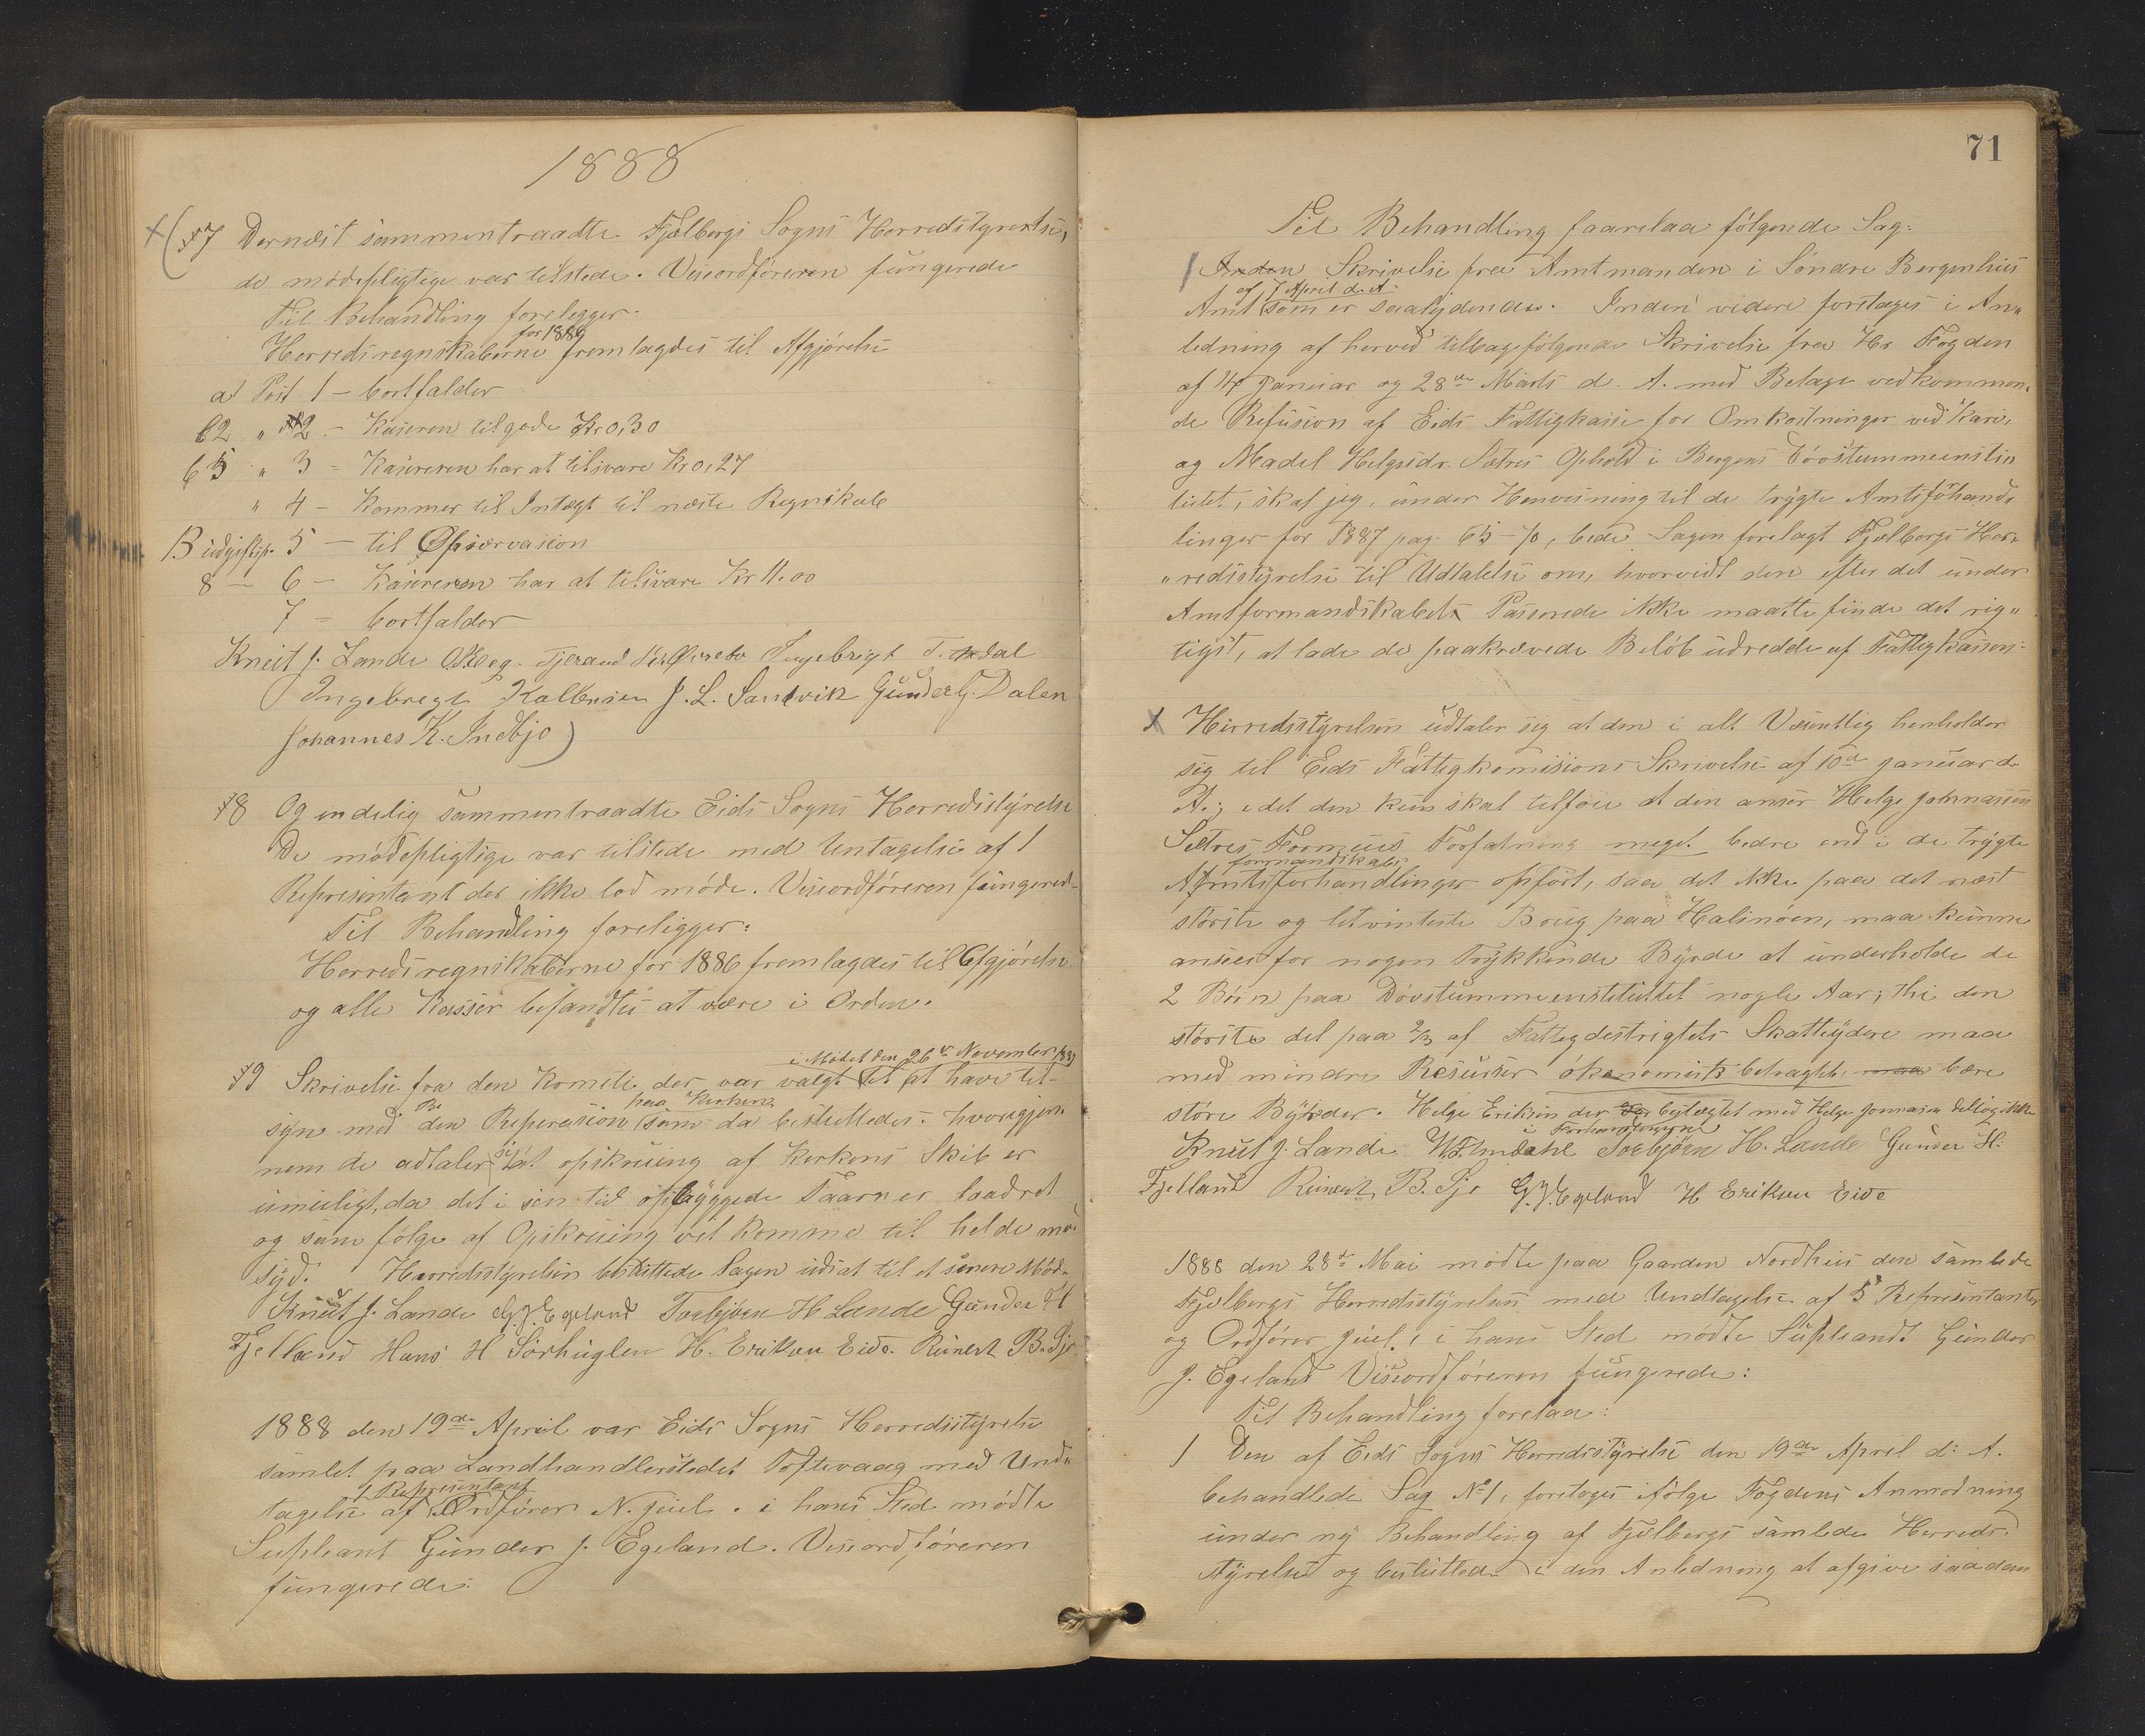 1888
§7 Dernæst sammentraadte Fjelbergs Sogns Herredstyrerlse,
de mødepligtige var tilstede. Viseordføreren fungerede
Til Behandling forelegger.
Herredsregnskaberne for 1886 fremlagdes til Afgjørelse
a Post 1 - bortfalder
62 " 2 - Kaseren tilgode Kr 0,30
65 " 3 - Kasereren har at tilsvare Kr 0,27
" 4 - Kommer til Intægt til næste Regnskab
B udgiftsp. 5 - til Opsærvasion
8 - 6 - Kasereren har at tilsvare Kr 11.00
7 - bortfalder
Knut J. Lande Tjerand Ingebrigt T.
Ingebregt J. L. Sandvik Gunder G. Dalen
Johannes K. Indbjo)
§8 Og endelig sammentraadte Eids Sogns Herredsstyrelse
De mødepligtige var tilstede med Untagelse af 1
Represintant der ikke lod møde. Viseordføreren fungered-
Til Behandling foreligger:
Herredsregnskaberne for 1886 fremlagdes til Afgjørelse
og alle Kasser befandtes at være i Orden.
i Mødet den 26de November 1887
§9 Skrivelse fra den Komite der var valgt til at have til-
syn med den Reperasion paa Kirken som da besluttedes. hvorigjen-
nem de udtaler sig at opskruing af Kirkens Skib er
umuligt, da det i sin tid opbyggede Taarn er
og som følge af Opskruing vil komme til helde mod
syd. Herredsstyrelsen besluttede Sagen udsat til et senere Møde
Knut J. Lande G. J. Egeland Torbjørn H Lande Gunder H
Fjelland Hans H Sørhuglen H. Eriksen Eide. Reinert B. Sjo
1888 den 19de April var Eids Sogns Herredsstyrelse
samlet paa Landhandlerstedet Toftevaag med Und-
tagelse af 1 Represintant Ordfører N. Juel. i hans Sted mødte
Supleant Gunder J. Egeland. Viseordføreren
fungerede:
71
Til Behandling foorelaa følgende Sag:
1 Skrivelse fra Amtmanden i Søndre Bergenhus
Amt af 7 April d. A. som er saalydende. Inden videre foretages i An"
ledning af herved tilbagefølgende Skrivelse fra Hr Fogden
af 14 Januar og 28de Marts d. A. med Belage vedkommen-
de Refusion af Eids Fattigkasse for Omkostninger ved Kari,
og Madel Helgesdr. Sætres Ophold i Bergens Døvstummeinsti"
tutet, skal jeg, under Henvisning til de trygte Amtsføhand,
linger for 1887 pag. 65-70, bede Sagen forelagt Fjelbergs Her"
"redsstyrelse til Udtalelse om, hvorvidt den efter det under
Amtformandskabet Passerede ikke maatte finde det rig"
tigst, at lade de paakrævede Beløb udredde af Fattigkassen.
Herredsstyrelsen udtaler sig at den i alt Væsentlig henholder
sig til Eids Fattigkomisions Skrivelse af 10de Januar d.
A.; idet den kun skal tilføie at den anser Helge Johnassen
Sætres Formues Forfatning meget bedre end i de trygte
Amtsformandskabsforhandlinger opført, saa det ikke paa det næst
største og letvinteste Brug paa Halsnøen, maa kunne
anses for nogen Trykkende Byrde at underholde de
2 Børn paa Døvstummeinstituttet nogle Aar; thi den
største del paa 2/3 af Fattigdestrigtets Skatteydere maa
med mindre Resurser økonomisk betragtet bære
støre Byrder. Helge Eriksen der er beslægtet med Helge Jonnasen deltog ikke
i Forhandlingerne
Knut J. Lande Torbjørn H. Lande Gunder H.
Fjelland Reinert B. Sjo G. J. Egeland H Eriksen Eide
1888 den 28de Mai mødte paa Gaarden Nordhus den samlede
Fjelbergs Herredsstyrelsen med Undtagelse af 5 Represintanter
og Ordfører Juel, i hans Sted mødte Supleandt Gunder
J. Egeland Viseordføreren fungerede:
Til Behandling forelaa:
1 Den af Eids Sogns Herredsstyrelse den 19de April d. A.
behandlede Sag No 1, foretages ifølge Fogdens Anmodning
under ny Behandling af Fjelbergs samlede Herreds-
styrelse og besluttede i den Anledning at afgive saadan